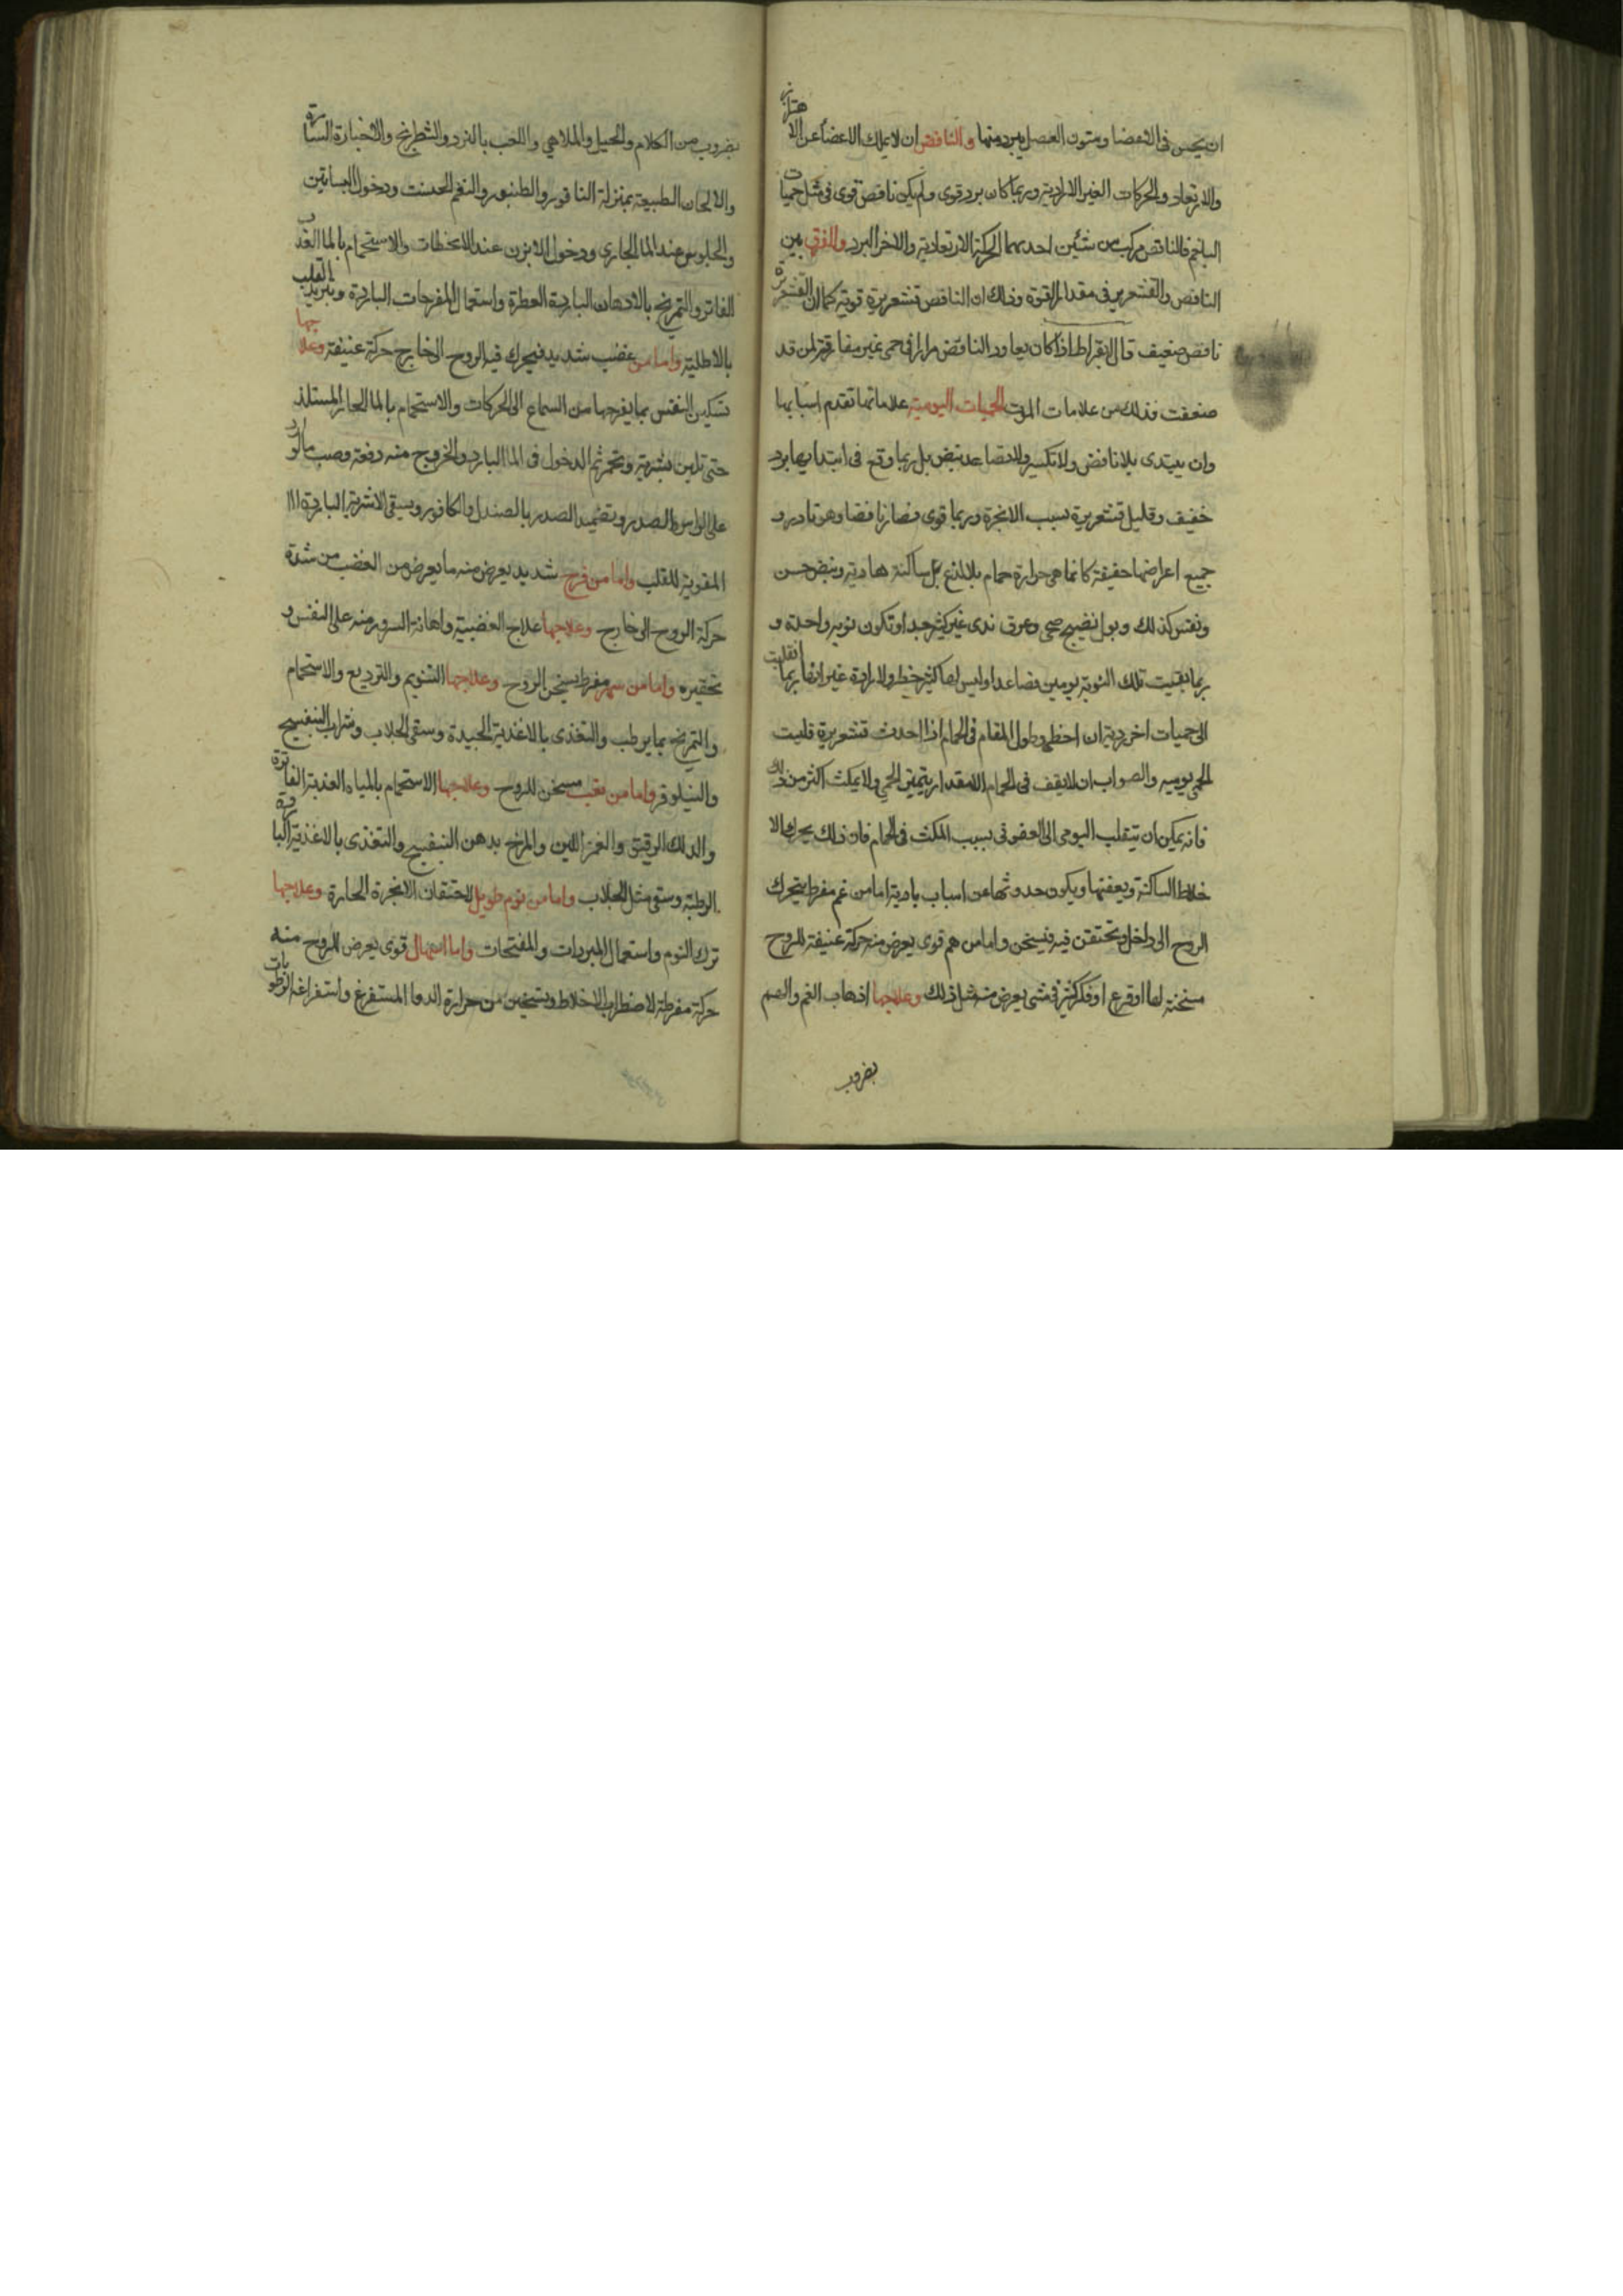 ان يحس فى الاعضا ومتون العضل ببرد منها والنافض ان لا يملك الاعضا عن الاهتزاز
والارتعاد والحركات الغير الارادية وربما كان برد قوى ولم يكن نافض قوى فى مثل حميات
البلغم فالنافض مركب من شئين احدهما الحركة الارتعادية والاخر البرد والفرق بين
النافض والقشعرير فى مقدار القوة وذلك ان النافض قشعريرة قوية كما ان القشعريرة
نافض ضعيف قال بقراط اذا كان يعاود النافض مرارا فى حمى غير مفارقة لمن قد
ضعفت فذلك من علامات الموت الحميات اليومية علاماتها تقدم اسبابها
وان يبتدى بلا نافض ولا تكسير ولا تضاعد نبض بل ربما وقع فى ابتدايها برد
خفيف وقليل قشعريرة بسبب الابخرة وربما قوى فصار نافضا وهو نادر و
جميع اعراضها خفيفة كانما هى حرارة حمام بلا لذع بل ساكنة هادية ونبض حسن
ونفس كذلك وبول نضيج صحى وعرق ندى غير كثير جدا وتكون نوبه واحدة و
ربما بقيت تلك النوبة يومين فصاعدا وليس لها كثير خطر ولا رداءة غير انها ربما انقلبت
الى حميات اخر ردية ان اخطى وطول المقام فى الحمام اذا احدث قشعريرة فليت
الحمى يوميه والصواب ان لا يقف فى الحمام الا مقدار يتميز الحمى ولا يمكث اكثر من ذلك
فانه يمكن ان ينقلب اليومى الى العفونى بسبب المكث فى الحمام فان ذلك يحرك الا
خلاط الساكنة ويعفنها ويكون حدوثها من اسباب بادية اما من غم مفرط يتحرك
الروح الى داخل وتحتقن فيه فيسخن واما من هم قوى يعرض منه حركة عنيفة للروح
مسخنة لها او فزع او فكر كثير فى شى يعرض منه مثل ذلك وعلاجها اذهاب الغم والهم
بضروب
بضروب من الكلام والحيل والملاهي واللعب بالنرد والشطرنج والاخبارة السارة
والالحان الطبيعة بمنزلة الناقور والطنبور والنغم الحسنت ودخول البساتين
والجلوس عند الما الجارى ودخول الابزن عند الانحطاط والاستحمام بالما العذب
الفاتر والتمريخ بالادهان الباردة العطرة واستعمال المفرحات الباردة وتبريد القلب
بالاطلية واما من غضب شديد فيحرك فيه الروح الى خارج حركة عنيفة وعلاجها
تسكين النفس بما يفرجها من السماع الى الحركات والاستحمام بالما الحار المستلذ
حتى تلين بشرته وتحمر ثم الدخول فى الما البارد والخروج منه دفعة وصب مالورد
على الراس والصدر وتضميد الصدر بالصندل والكافور ويسقى الاشربة الباردة
المقوية للقلب واما من فرح شديد يعرض منه ما يعرض من الغضب من شدة
حركة الروح الى خارج وعلاجها علاج الغضبية واهانة السرور منه على النفس و
تحقيره واما من سهر مفرط يسخن الروح وعلاجها التنويم والتوديع والاستحمام
والتمريخ بما يرطب والتغذى بالاغذية الجيدة وسقى الجلاب وشراب البنفسج
والنيلوفر واما من تعب مسخن للروح وعلاجها الاستحمام بالمياه العذبة الفاترة
والدلك الرقيق والغمز اللين والمرخ بدهن البنفسج والتغذى بالاغذية الباردة
الرطبة وسقى مثل الجلاب واما من نوم طويل لاحتقان الابخرة الحارة وعلاجها
ترك النوم واستعمال المبردات والمفتحات واما اسهال قوى يعرض للروح منه
حركة مفرطة لاضطراب الاخلاط وتسخين من حرارة الدوا المستفرغ واستفراغه الرطوبات